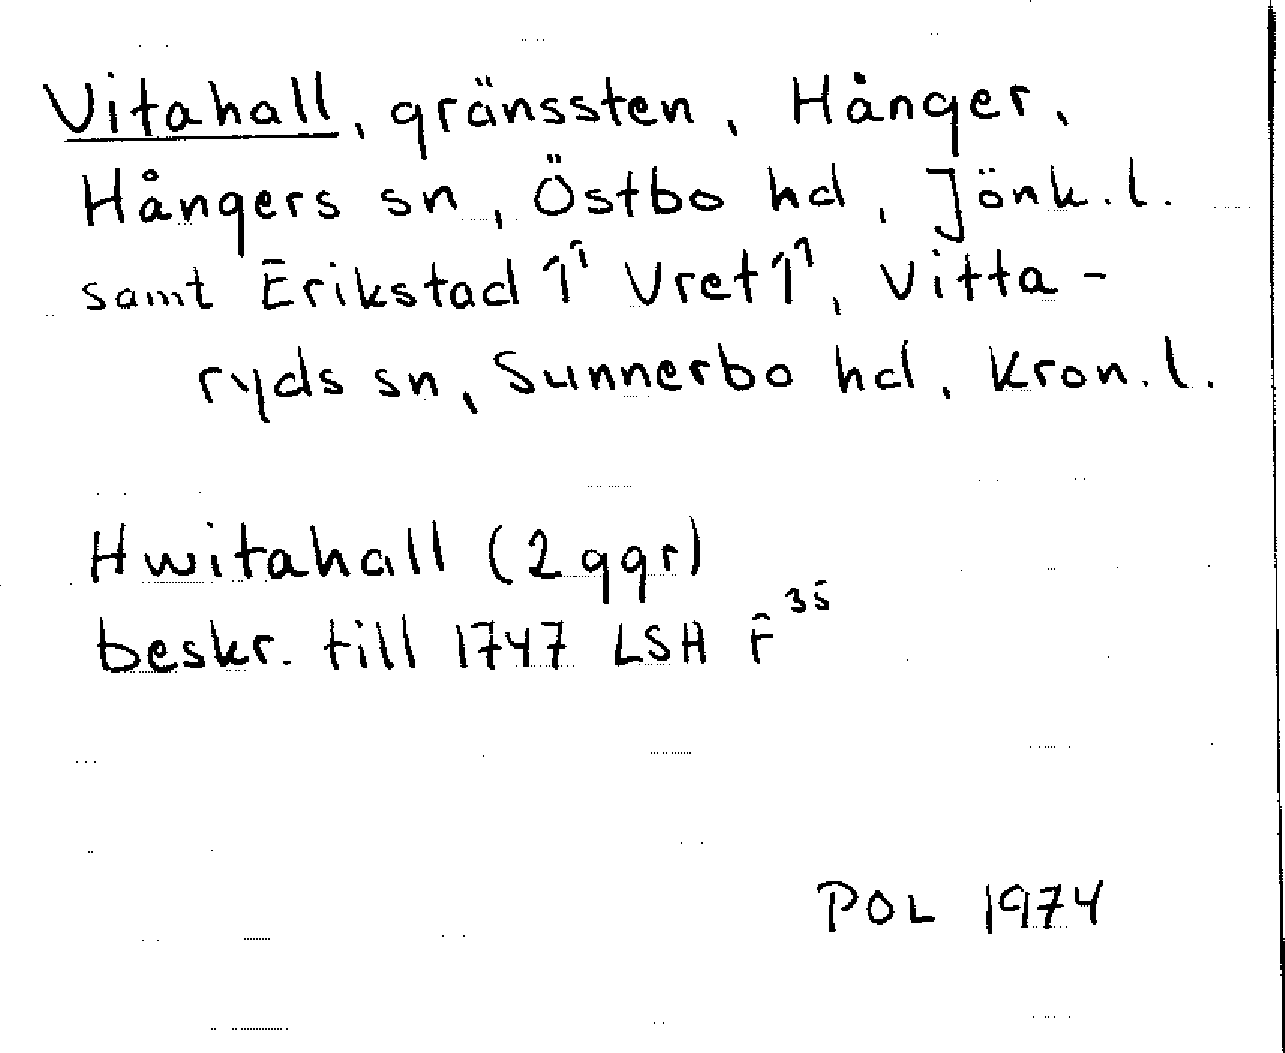 Vitahall, gränssten, Hånger,
Hångers sn, Östbo hd, Jönk. l.
samt Erikstad 1¹ Vret 1¹, Vitta-
ryds sn, Sunnerbo hd, Kron. l.
Hwitahall (2 ggr)
beskr. till 1747 LSH F³⁵
POL 1974